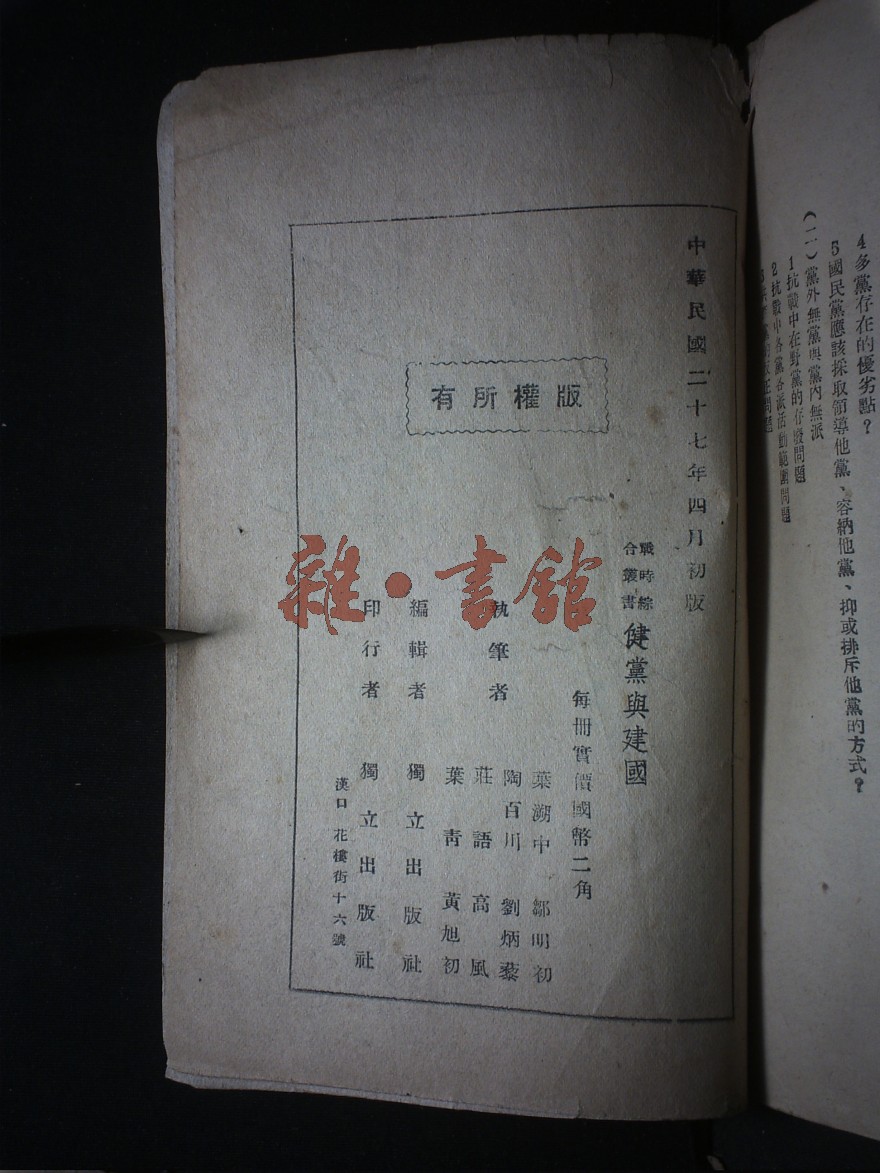 4 多黨存在的優劣點？
5 國民黨應該採取領導他黨、容納他黨、抑或排斥他黨的方式？
（二）黨外無黨與黨內無派
1 抗戰中在野黨的存廢問題
2 抗戰中各黨各派活動範圍問題
中華民國二十七年四月初版
版權所有
戰時綜合叢書
健黨與建國
每冊實價國幣二角
執筆者
葉溯中 鄒明初
陶百川 劉炳藜
莊語 高風
葉青 黃旭初
編輯者 獨立出版社
印行者 獨立出版社
漢口花樓街十六號
雜·書館